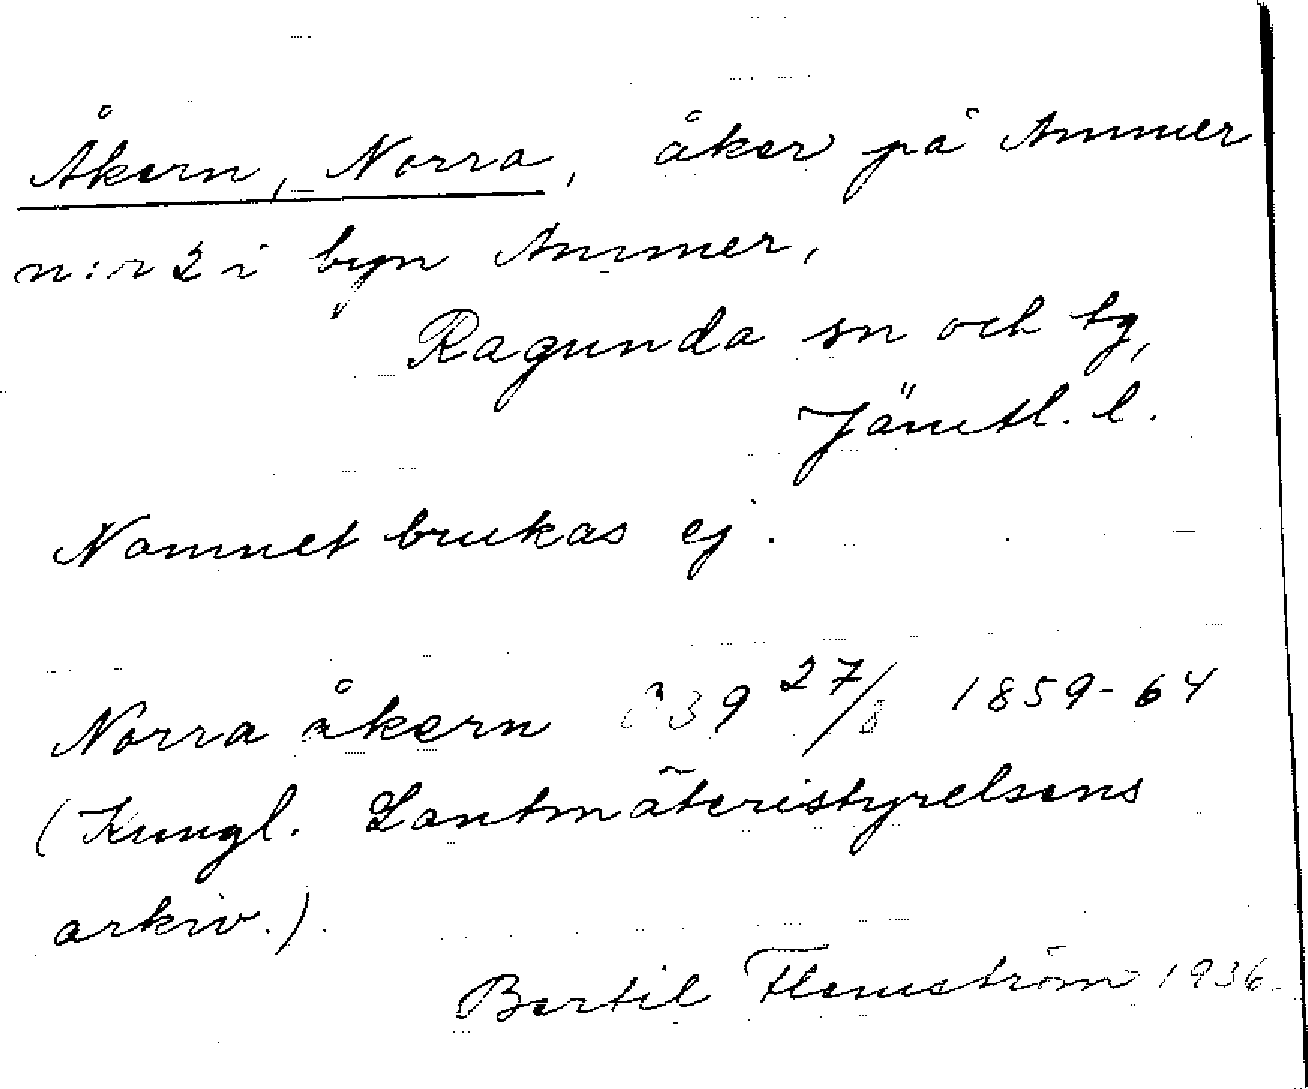 Åkern, Norra, åker på Ammer
n:r 2 i byn Ammer,
Ragunda sn och tg,
Jämtl. l.
Namnet brukas ej.
Norra åkern 27/8 1859-64
(Kungl. Lantmäteristyrelsens
arkiv.).
Bertil Flemström 1936